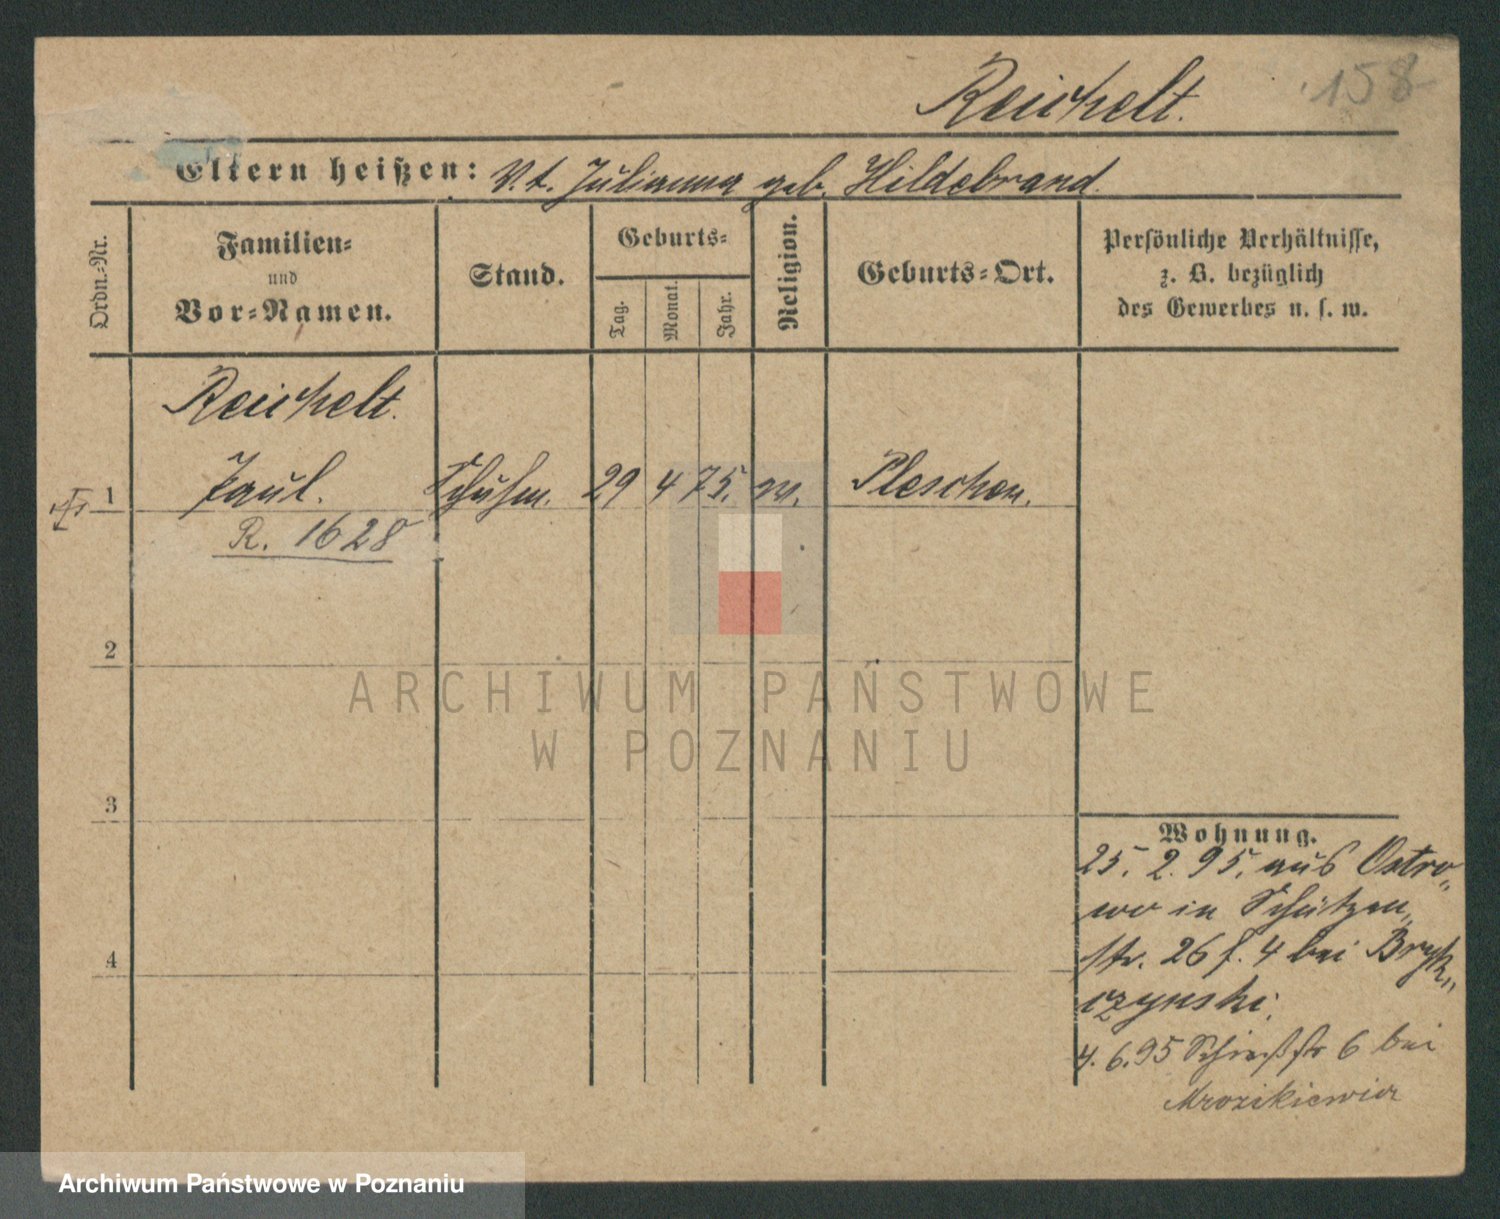 Reichelt.
158
Eltern heißen: V. t. Julianna geb. Hildebrand.
Ordn.-Nr.
Familien-
und
Vor-Namen.
Stand.
Geburts-
Tag.
Monat.
Jahr.
Religion.
Geburts-Ort.
Persönliche Verhältnisse,
z. B. bezüglich
des Gewerbes u. s. w.
Reichelt.
1 Paul. Schuhm. 29 4 75. ev. Pleschen.
R. 1628
2
3
4
Wohnung.
25. 2. 95. aus Ostro-
wo in Schützen-
str. 26 f. 4 bei
czynski.
4. 6. 95 Schießstr 6 bei
Mrozikiewicz
ARCHIWUM PAŃSTWOWE
W POZNANIU
Archiwum Państwowe w Poznaniu